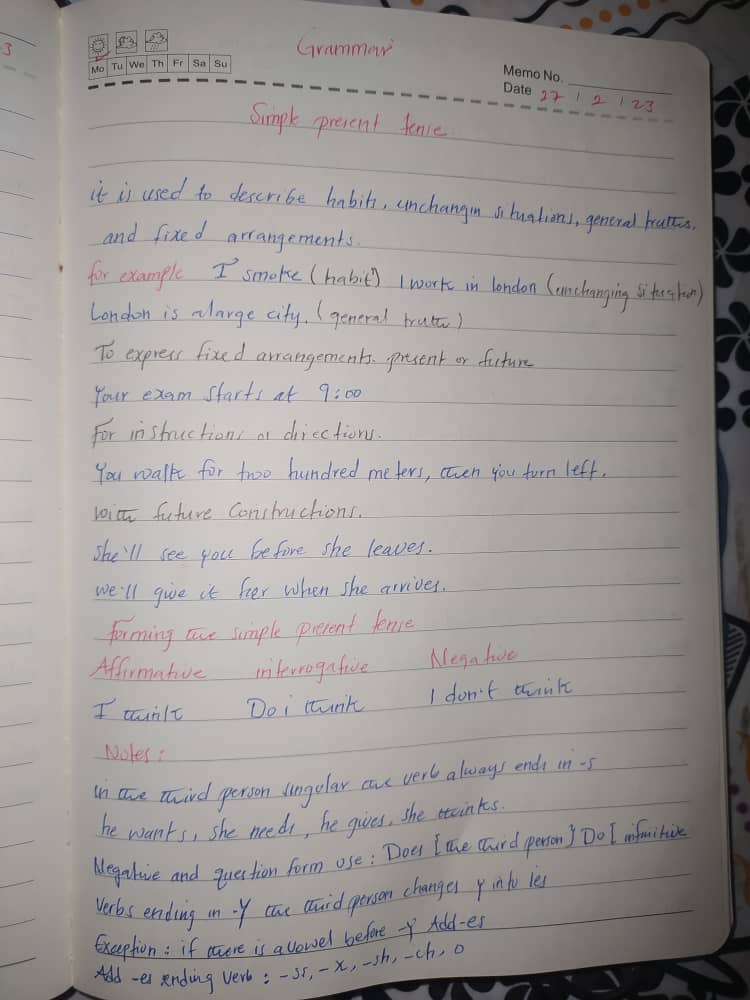 3
Grammar
Mo Tu We Th Fr Sa Su
Memo No.
Date 27 / 2 / 23
Simple present tense
it is used to describe habits, unchangin situations, general truths,
and fixed arrangements.
for example I smoke (habit) I work in london (unchanging situation)
London is a large city. (general truth)
To express fixed arrangements. present or future
Your exam starts at 9:00
For instructions or directions.
You walk for two hundred meters, then you turn left.
with future Constructions.
She'll see you before she leaves.
we'll give it her when she arrives.
Forming the simple present tense
Affirmative interrogative Negative
I think Do i think I don't think
Notes:
in the third person singular the verb always ends in -s
he wants, she needs, he gives, she thinks.
Negative and question form use: Does [the third person] Do [infinitive
Verbs ending in -Y the third person changes y into ies
Exception: if there is a vowel before -Y Add-es
Add -es ending verb: -ss, -x, -sh, -ch, o